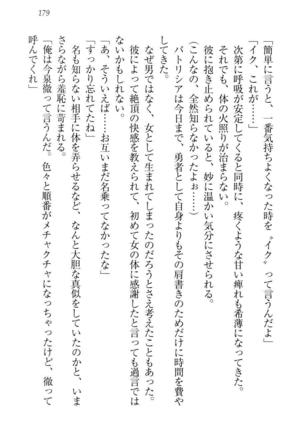 179
「簡単に言うと、一番気持ちよくなった時を〝イク〟って言うんだよ」
「イク、これが……」
次第に呼吸が安定してくると同時に、疼くような甘い痺れも希薄になってきた。
それでも、体の火照りが治まらない。
彼に抱き止められていると、妙に温かい気分にさせられる。
(こんなの、全然知らなかったよぉ……)
パトリシアは今日まで、勇者として自身よりもその肩書きのためだけに時間を費や
なぜ男ではなく、女として生まれてしまったのだろうとさえ考えたこともあったの
に、彼によって絶頂の快感を教えられて、初めて女の体に感謝したと言っても過言では
ないかもしれない。
「あ、そういえば……お互いまだ名乗ってなかったな」
「すっかり忘れてたね」
名も知らない相手に体を弄らせるなど、なんと大胆な真似をしていたのかと、いま
さらながら羞恥に苛まれる。
「俺は今泉徹って言うんだ。色々と順番がメチャクチャになっちゃったけど、徹って
呼んでくれ」